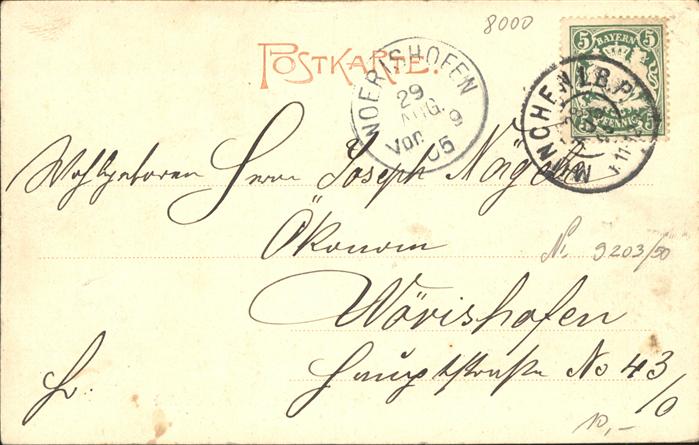 8000
POSTKARTE.
5 BAYERN 5
5 PFENNIG 5
WOERISHOFEN
29
AUG. 9
Vor. 05
MÜNCHEN I. B.P.
Wohlgeboren Herrn Joseph
Ökonom
N. 9203/50
Wörishofen
Hauptstraße No 43
/0
fr.
10,-